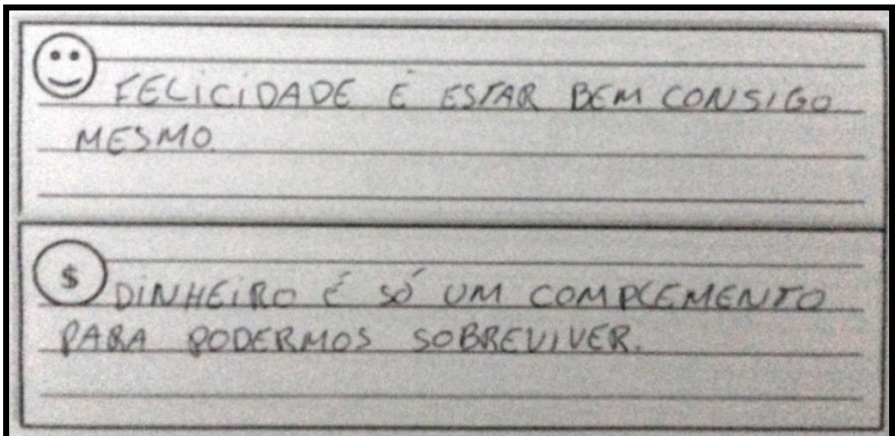 FELICIDADE É ESTAR BEM CONSIGO
MESMO.
$
DINHEIRO É SÓ UM COMPLEMENTO
PARA PODERMOS SOBREVIVER.